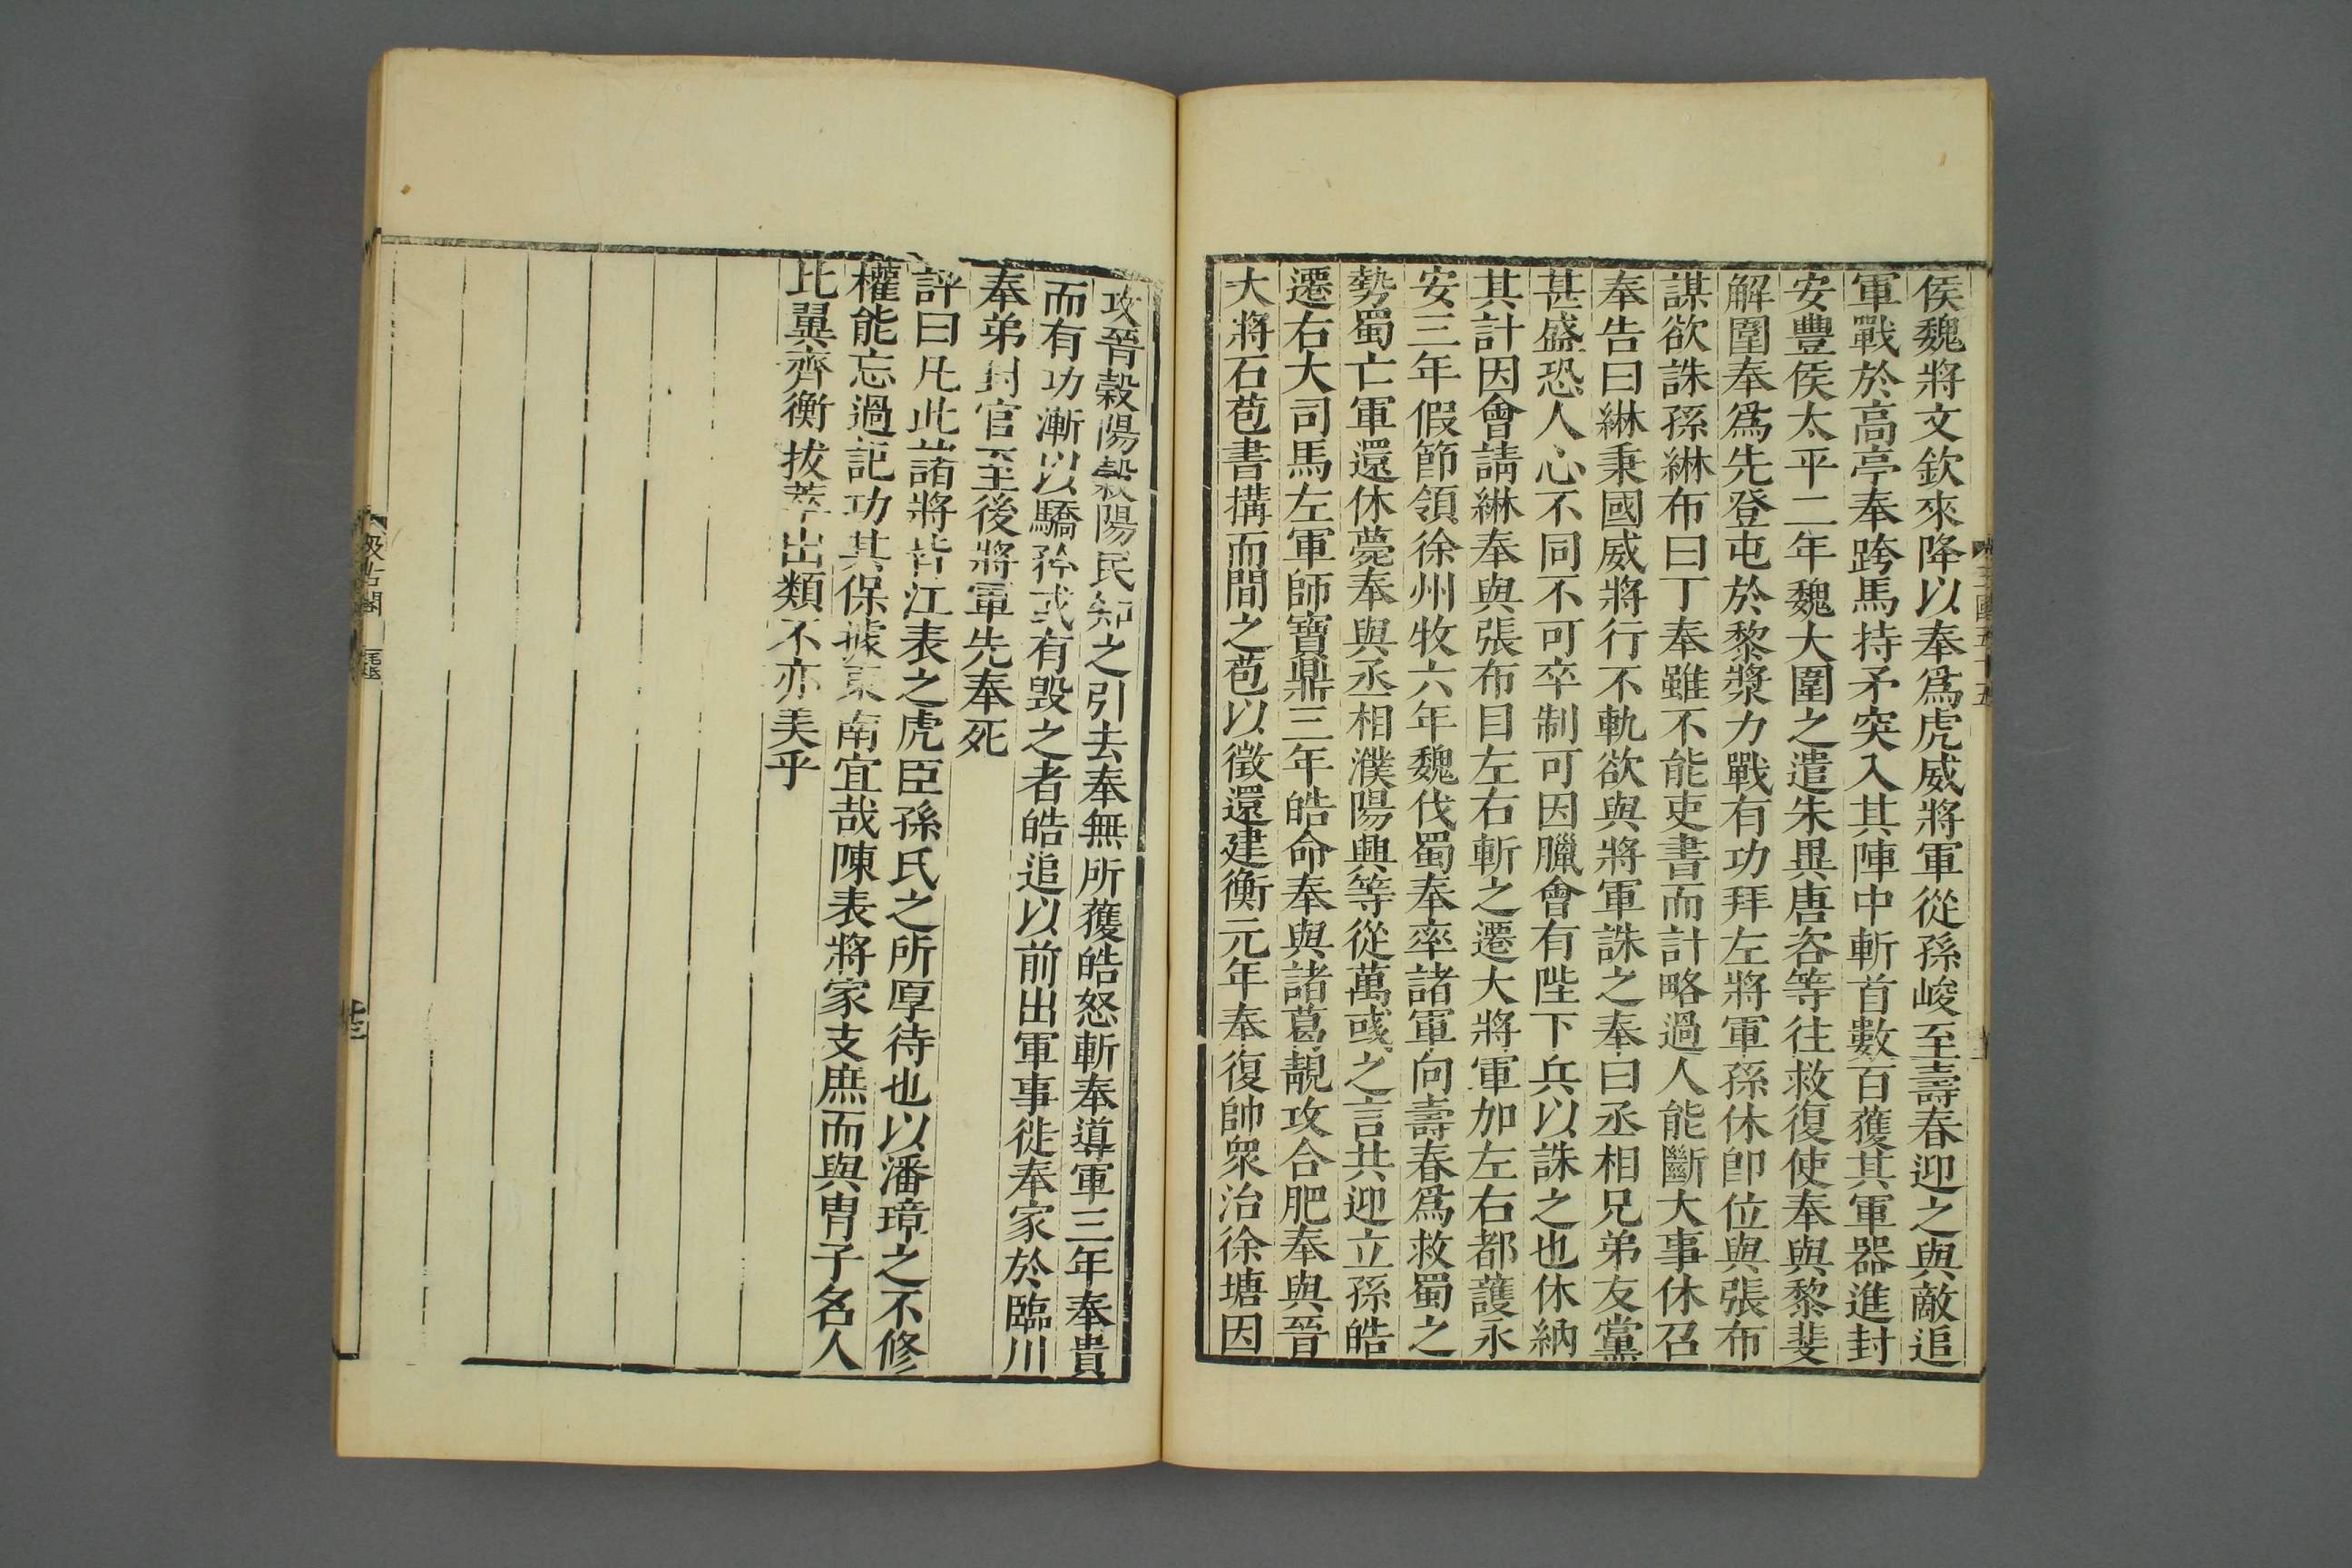 侯魏將文欽來降以奉爲虎威將軍從孫峻至壽春迎之與敵追
軍戰於高亭奉跨馬持矛突入其陣中斬首數百獲其軍器進封
安豐侯太平二年魏大圍之遣朱異唐咨等往救復使奉與黎斐
解圍奉爲先登屯於黎漿力戰有功拜左將軍孫休卽位與張布
謀欲誅孫綝布曰丁奉雖不能吏書而計略過人能斷大事休召
奉告曰綝秉國威將行不軌欲與將軍誅之奉曰丞相兄弟友黨
甚盛恐人心不同不可卒制可因臘會有陛下兵以誅之也休納
其計因會請綝奉與張布目左右斬之遷大將軍加左右都護永
安三年假節領徐州牧六年魏伐蜀奉率諸軍向壽春爲救蜀之
勢蜀亡軍還休薨奉與丞相濮陽興等從萬彧之言共迎立孫皓
遷右大司馬左軍師寶鼎三年皓命奉與諸葛靚攻合肥奉與晉
大將石苞書搆而間之苞以徵還建衡元年奉復帥衆治徐塘因
攻晉穀陽穀陽民知之引去奉無所獲皓怒斬奉導軍三年奉貴
而有功漸以驕矜或有毀之者皓追以前出軍事徙奉家於臨川
奉弟封官至後將軍先奉死
評曰凡此諸將皆江表之虎臣孫氏之所厚待也以潘璋之不修
權能忘過記功其保據東南宜哉陳表將家支庶而與冑子名人
比翼齊衡拔萃出類不亦美乎
三國五十五
汲古閣